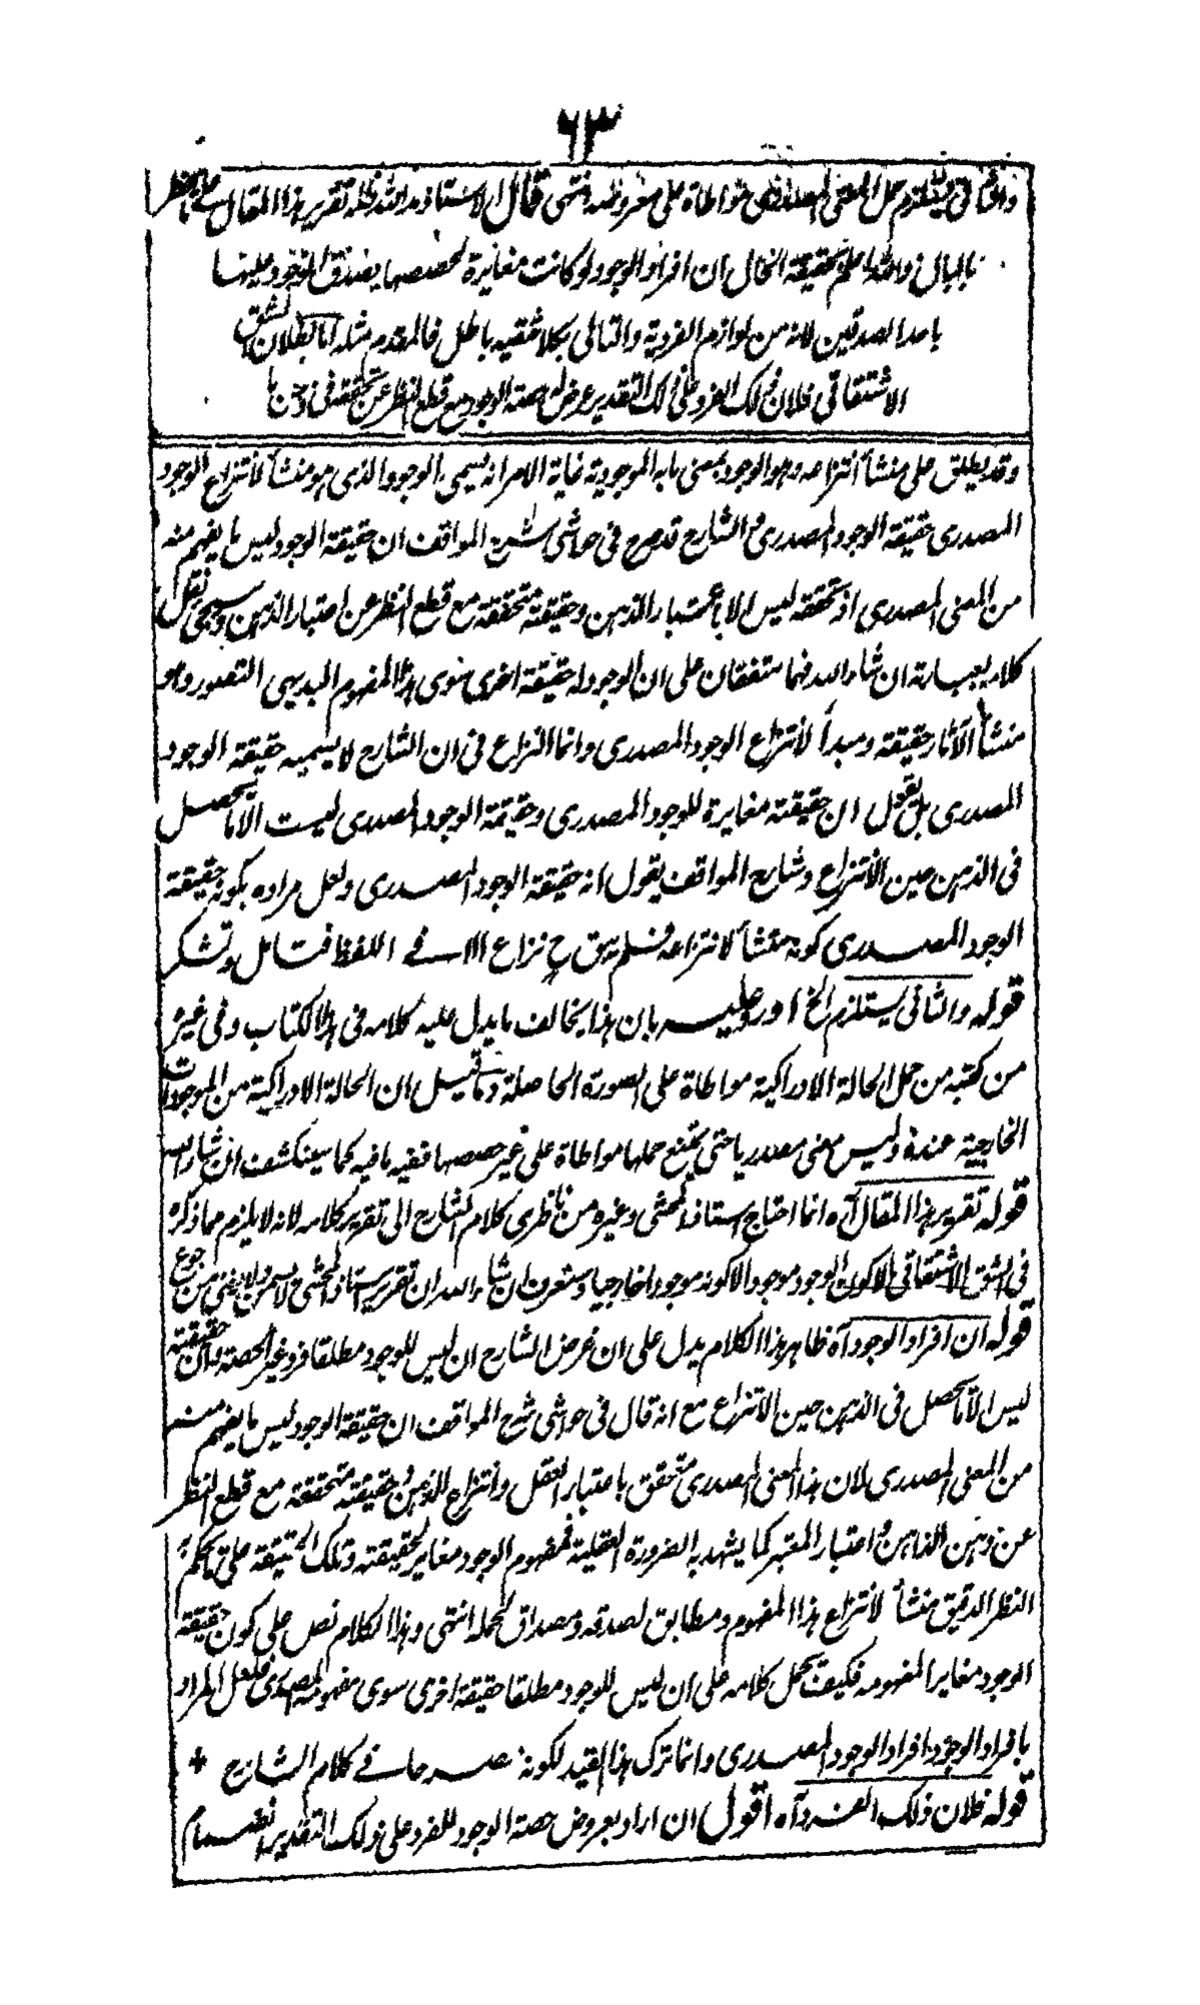 ٦٣
والثاني يستلزم حمل المعنى المصدري مواطاة على معروضه انتهى قال الاستاذ مد الله ظله تقرير هذا المقال على ما يخطر
بالبال والله اعلم بحقيقة الحال ان افراد الوجود لو كانت مغايرة لحصصها يصدق الوجود عليها
باحد الصدقين لانه من لوازم الفردية والتالي بكلا شقيه باطل فالمقدم مثله اما بطلان الشق
الاشتقاقي فلان ذلك الفرد على ذلك التقدير عرض له حصة الوجود مع قطع النظر عن تحققه في ذهن ما
وقد يطلق على منشأ انتزاعه وهو الوجود بمعنى ما به الموجودية غاية الامر انه يسمى الوجود الذي هو منشأ لانتزاع الوجود
المصدري حقيقة الوجود المصدري والشارح قد صرح في حواشي شرح المواقف ان حقيقة الوجود ليس ما يفهم منه
من المعنى المصدري اذ تحققه ليس الا باعتبار الذهن وحقيقته متحققة مع قطع النظر عن اعتبار الذهن وسيجئ نقل
كلامه بعبارته ان شاء الله فهما متفقان على ان الوجود له حقيقة اخرى سوى هذا المفهوم البديهي التصور وهو
منشأ الآثار حقيقة ومبدأ لانتزاع الوجود المصدري وانما النزاع في ان الشارح لا يسميه حقيقة الوجود
المصدري بل يقول ان حقيقته مغايرة للوجود المصدري وحقيقة الوجود المصدري ليست الا ما يحصل
في الذهن حين الانتزاع وشارح المواقف يقول انه حقيقة الوجود المصدري ولعل مراده بكونه حقيقة
الوجود المصدري كونه منشأ لانتزاعه فلم يبق ح نزاع الا في اللفظ فتأمل وتشكر
قوله والثاني يستلزم الخ اورد عليه بان هذا يخالف ما يدل عليه كلامه في هذا الكتاب وفي غيره
من كتبه من حمل الحالة الادراكية مواطاة على الصورة الحاصلة وما قيل ان الحالة الادراكية من الموجودات
الخارجية عنده وليس معنى مصدريا حتى يمتنع حملها مواطاة على غير حصصها ففيه ما فيه كما سينكشف ان شاء الله
قوله تقرير هذا المقال آه انما احتاج استاذ المحشي وغيره من ناظري كلام الشارح الى تقرير كلامه لانه لا يلزم مما ذكره
في الشق الاشتقاقي الا كون الوجود موجودا لا كونه موجودا خارجيا وستعرف ان شاء الله ان تقرير استاذ المحشي لا يسمن ولا يغني من جوع
قوله ان افراد الوجود آه ظاهر هذا الكلام يدل على ان غرض الشارح ان ليس للوجود مطلقا فرد غير الحصة وان حقيقته
ليس الا ما يحصل في الذهن حين الانتزاع مع انه قال في حواشي شرح المواقف ان حقيقة الوجود ليس ما يفهم منه
من المعنى المصدري لان هذا المعنى المصدري متحقق باعتبار العقل وانتزاع الذهن وحقيقته متحققة مع قطع النظر
عن ذهن الذاهن واعتبار المعتبر كما يشهد به الضرورة العقلية فمفهوم الوجود مغاير لحقيقته وتلك الحقيقة على ما يحكم به
النظر الدقيق منشأ لانتزاع هذا المفهوم ومطابق لصدقه ومصداق لحمله انتهى وهذا الكلام نص على كون حقيقة
الوجود مغايرا لمفهومه فكيف يحمل كلامه على ان ليس للوجود مطلقا حقيقة اخرى سوى مفهومه المصدري فلعل المراد
بافراد الوجود افراد الوجود المصدري وانما ترك هذا القيد لكونه مصرحا في كلام الشارح +
قوله فلان ذلك الفرد آه اقول ان اراد بعروض حصة الوجود للفرد على ذلك التقدير انضمام